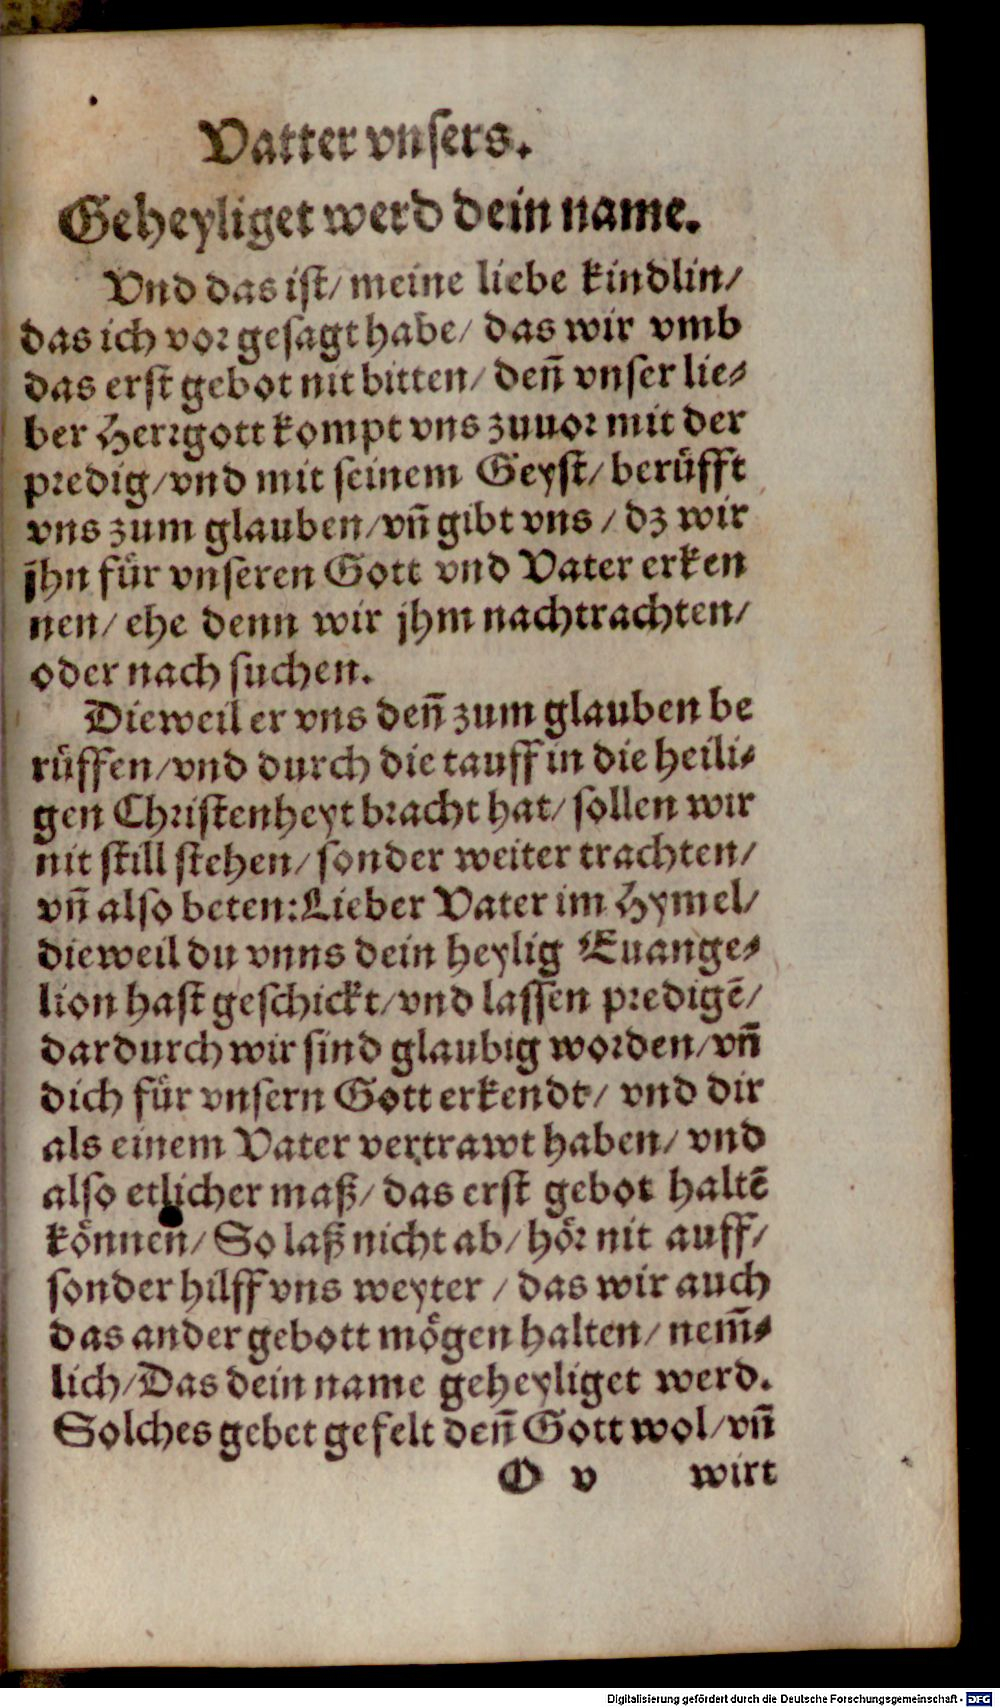 Vatter vnsers.
Geheyliget werd dein name.
Vnd das ist/ meine liebe kindlin/
das ich vor gesagt habe/ das wir vmb
das erst gebot nit bitten/ den̄ vnser lie-
ber Herrgott kompt vns zuuor mit der
predig/ vnd mit seinem Geyst/ beruͤfft
vns zum glauben/ vn̄ gibt vns / dz wir
jhn fuͤr vnseren Gott vnd Vater erken
nen/ ehe denn wir jhm nachtrachten/
oder nach suchen.
Dieweil er vns den̄ zum glauben be
ruͤffen/ vnd durch die tauff in die heili-
gen Christenheyt bracht hat/ sollen wir
nit still stehen/ sonder weiter trachten/
vn̄ also beten: Lieber Vater im Hymel/
dieweil du vnns dein heylig Euange-
lion hast geschickt/ vnd lassen predigē/
dardurch wir sind glaubig worden/ vn̄
dich fuͤr vnsern Gott erkendt/ vnd dir
als einem Vater vertrawt haben/ vnd
also etlicher maß/ das erst gebot haltē
koͤnnen/ So laß nicht ab/ hoͤr nit auff/
sonder hilff vns weyter / das wir auch
das ander gebott moͤgen halten/ nem̄-
lich/ Das dein name geheyliget werd.
Solches gebet gefelt den̄ Gott wol/ vn̄
O v wirt
Digitalisierung gefördert durch die Deutsche Forschungsgemeinschaft - DFG